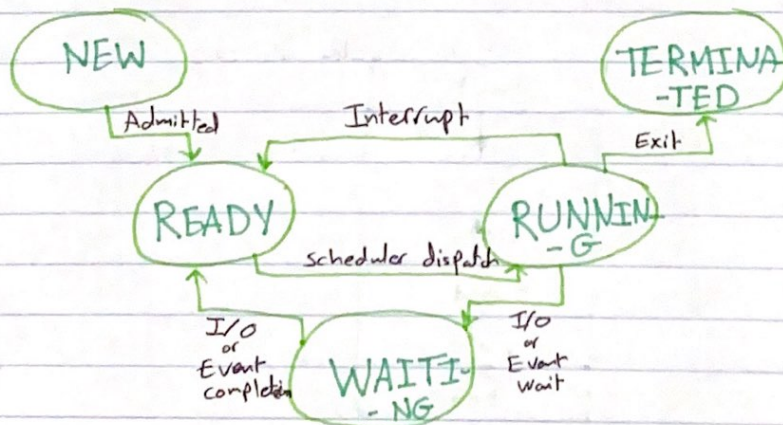 NEW
TERMINA
-TED
Admitted
Interrupt
Exit
READY
RUNNIN-
-G
scheduler dispatch
I/O
or
Event
completion
I/O
or
Event
wait
WAITI-
-NG